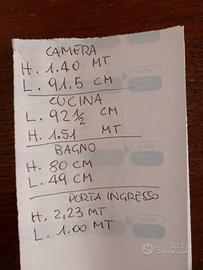 CAMERA
H. 1.40 MT
L. 91.5 CM
CUCINA
L. 92 1/2 CM
H. 1.51 MT
BAGNO
H. 80 CM
L. 49 CM
PORTA INGRESSO
H. 2,23 MT
L. 1.00 MT
subito